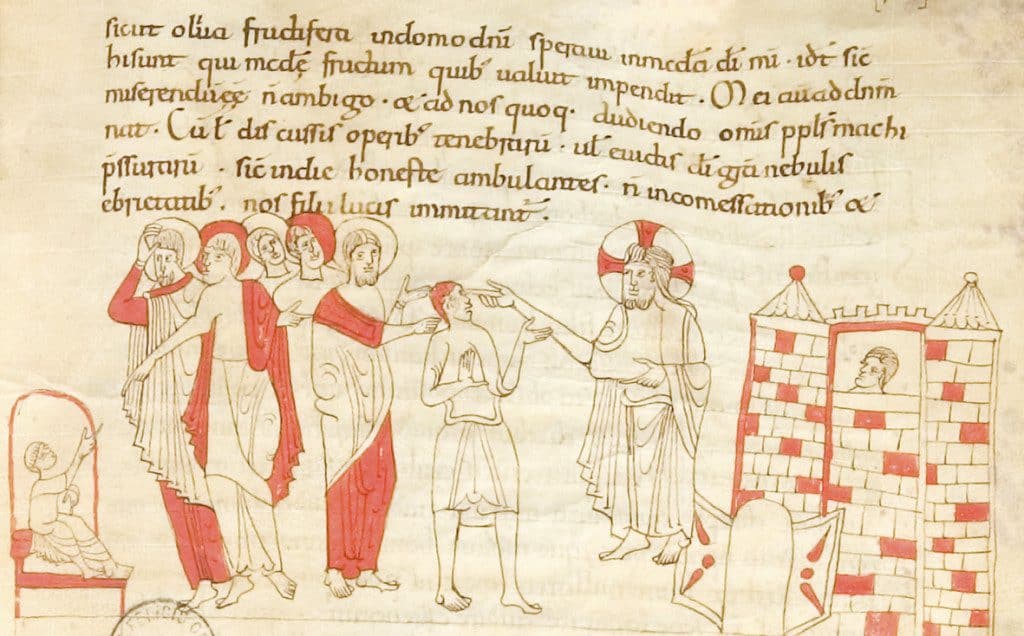 sicut oliua fructifera in domo dñi speraui in mcđa đi mi · idē sic̄
hi sunt qui mcđę fructum quib' ualuit impendit · M ei au ad dnm
miserendū n̄ ambigo · & ad nos quoq · audiendo om̄s ppls machi
nat · Cū discussis operib' tenebrarū · di grā nebulis
pssurarū · sic̄ in die honeste ambulantes · n̄ in comessationib' &
ebrietatib' · nos filii lucis
FELICIS